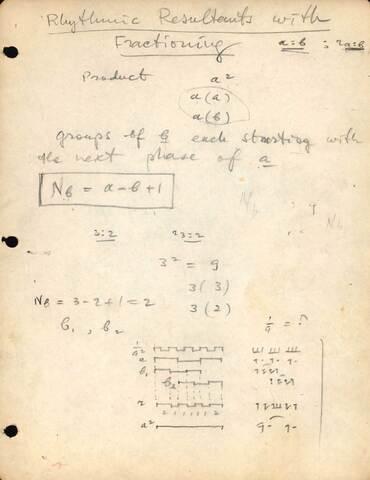 Rhythmic Resultants with
Fractioning
a÷b ; r a÷b
Product a²
a(a)
a(b)
groups of b each starting with
the next phase of a
N_b = a-b+1
3÷2 r 3÷2
3² = 9
3(3)
N_B = 3-2+1 = 2
3(2)
b₁, b₂
a
b₁
b₂
r
a²